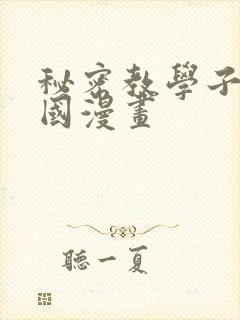 秘密教學子
國漫畫
聽一夏